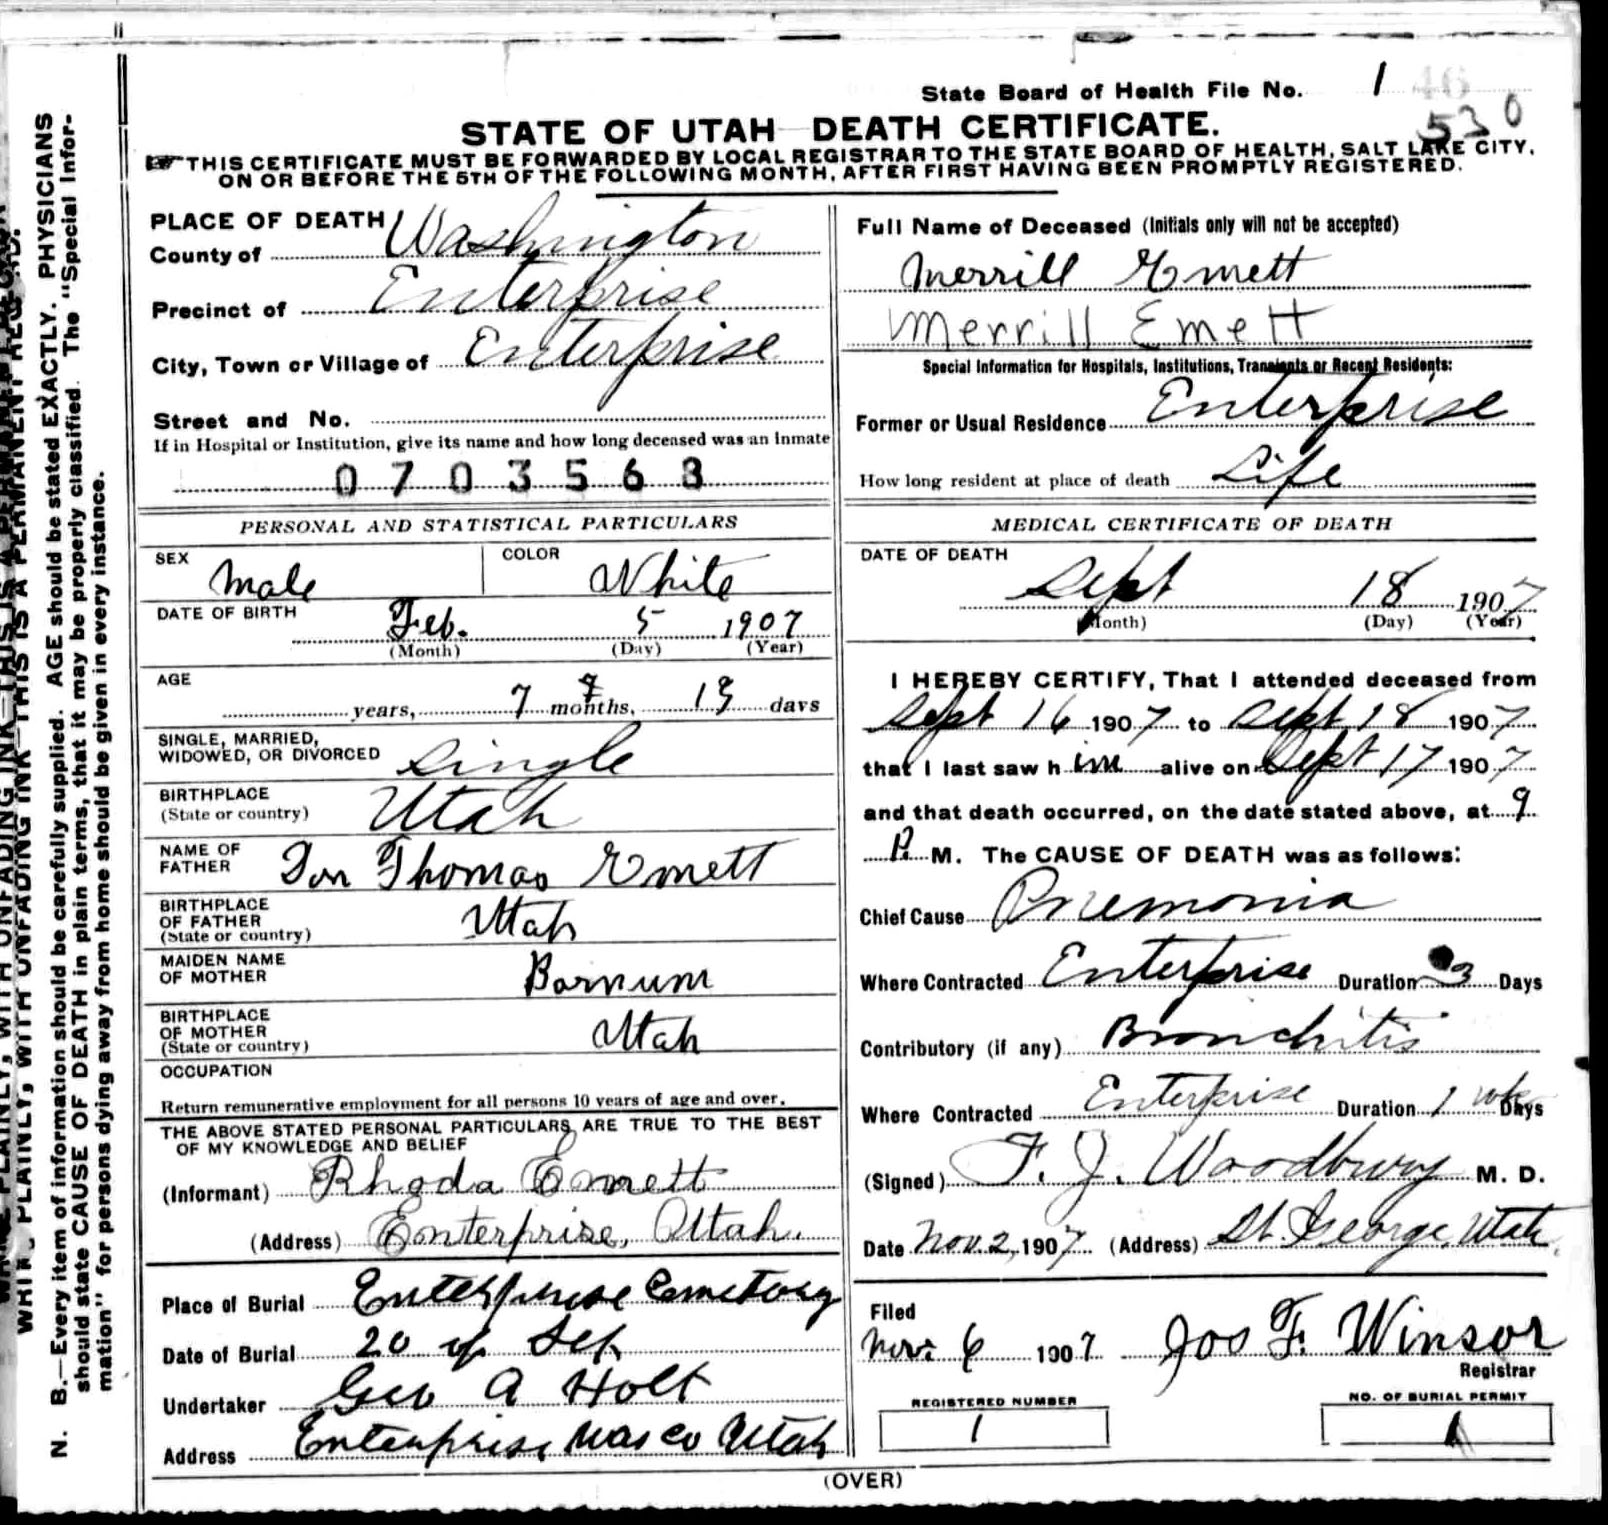 State Board of Health File No. 1 46
530
STATE OF UTAH DEATH CERTIFICATE.
THIS CERTIFICATE MUST BE FORWARDED BY LOCAL REGISTRAR TO THE STATE BOARD OF HEALTH, SALT LAKE CITY,
ON OR BEFORE THE 5TH OF THE FOLLOWING MONTH, AFTER FIRST HAVING BEEN PROMPTLY REGISTERED.
PLACE OF DEATH
County of Washington
Precinct of Enterprise
City, Town or Village of Enterprise
Street and No.
If in Hospital or Institution, give its name and how long deceased was an inmate
0703563
PERSONAL AND STATISTICAL PARTICULARS
SEX Male COLOR White
DATE OF BIRTH Feb. 5 1907
(Month) (Day) (Year)
AGE years, 7 months, 13 days
SINGLE, MARRIED,
WIDOWED, OR DIVORCED Single
BIRTHPLACE
(State or country) Utah
NAME OF
FATHER Thomas Emett
BIRTHPLACE
OF FATHER
(State or country) Utah
MAIDEN NAME
OF MOTHER Barnum
BIRTHPLACE
OF MOTHER
(State or country) Utah
OCCUPATION
Return remunerative employment for all persons 10 years of age and over.
THE ABOVE STATED PERSONAL PARTICULARS ARE TRUE TO THE BEST
OF MY KNOWLEDGE AND BELIEF
(Informant) Rhoda Emett
(Address) Enterprise, Utah.
Place of Burial Enterprise Cemetery
Date of Burial 20 of Sep
Undertaker Geo A Holt
Address Enterprise Was Co Utah
Full Name of Deceased (Initials only will not be accepted)
Merrill Emett
Merrill Emett
Special Information for Hospitals, Institutions, Transients or Recent Residents:
Former or Usual Residence Enterprise
How long resident at place of death Life
MEDICAL CERTIFICATE OF DEATH
DATE OF DEATH
Sept 18 1907
(Month) (Day) (Year)
I HEREBY CERTIFY, That I attended deceased from
Sept 16 1907 to Sept 18 1907
that I last saw him alive on Sept 17 1907
and that death occurred, on the date stated above, at 9
P. M. The CAUSE OF DEATH was as follows:
Chief Cause Pnemonia
Where Contracted Enterprise Duration 3 Days
Contributory (if any) Bronchitis
Where Contracted Enterprise Duration 1 wk Days
(Signed) F. J. Woodbury M. D.
Date Nov. 2, 1907 (Address) St. George, Utah.
Filed
Nov. 6 1907 Jos F. Winsor
Registrar
REGISTERED NUMBER
1
NO. OF BURIAL PERMIT
1
(OVER)
WRITE PLAINLY, WITH UNFADING INK—THIS IS A PERMANENT RECORD.
N. B.—Every item of information should be carefully supplied. AGE should be stated EXACTLY. PHYSICIANS
should state CAUSE OF DEATH in plain terms, that it may be properly classified. The "Special Infor-
mation" for persons dying away from home should be given in every instance.